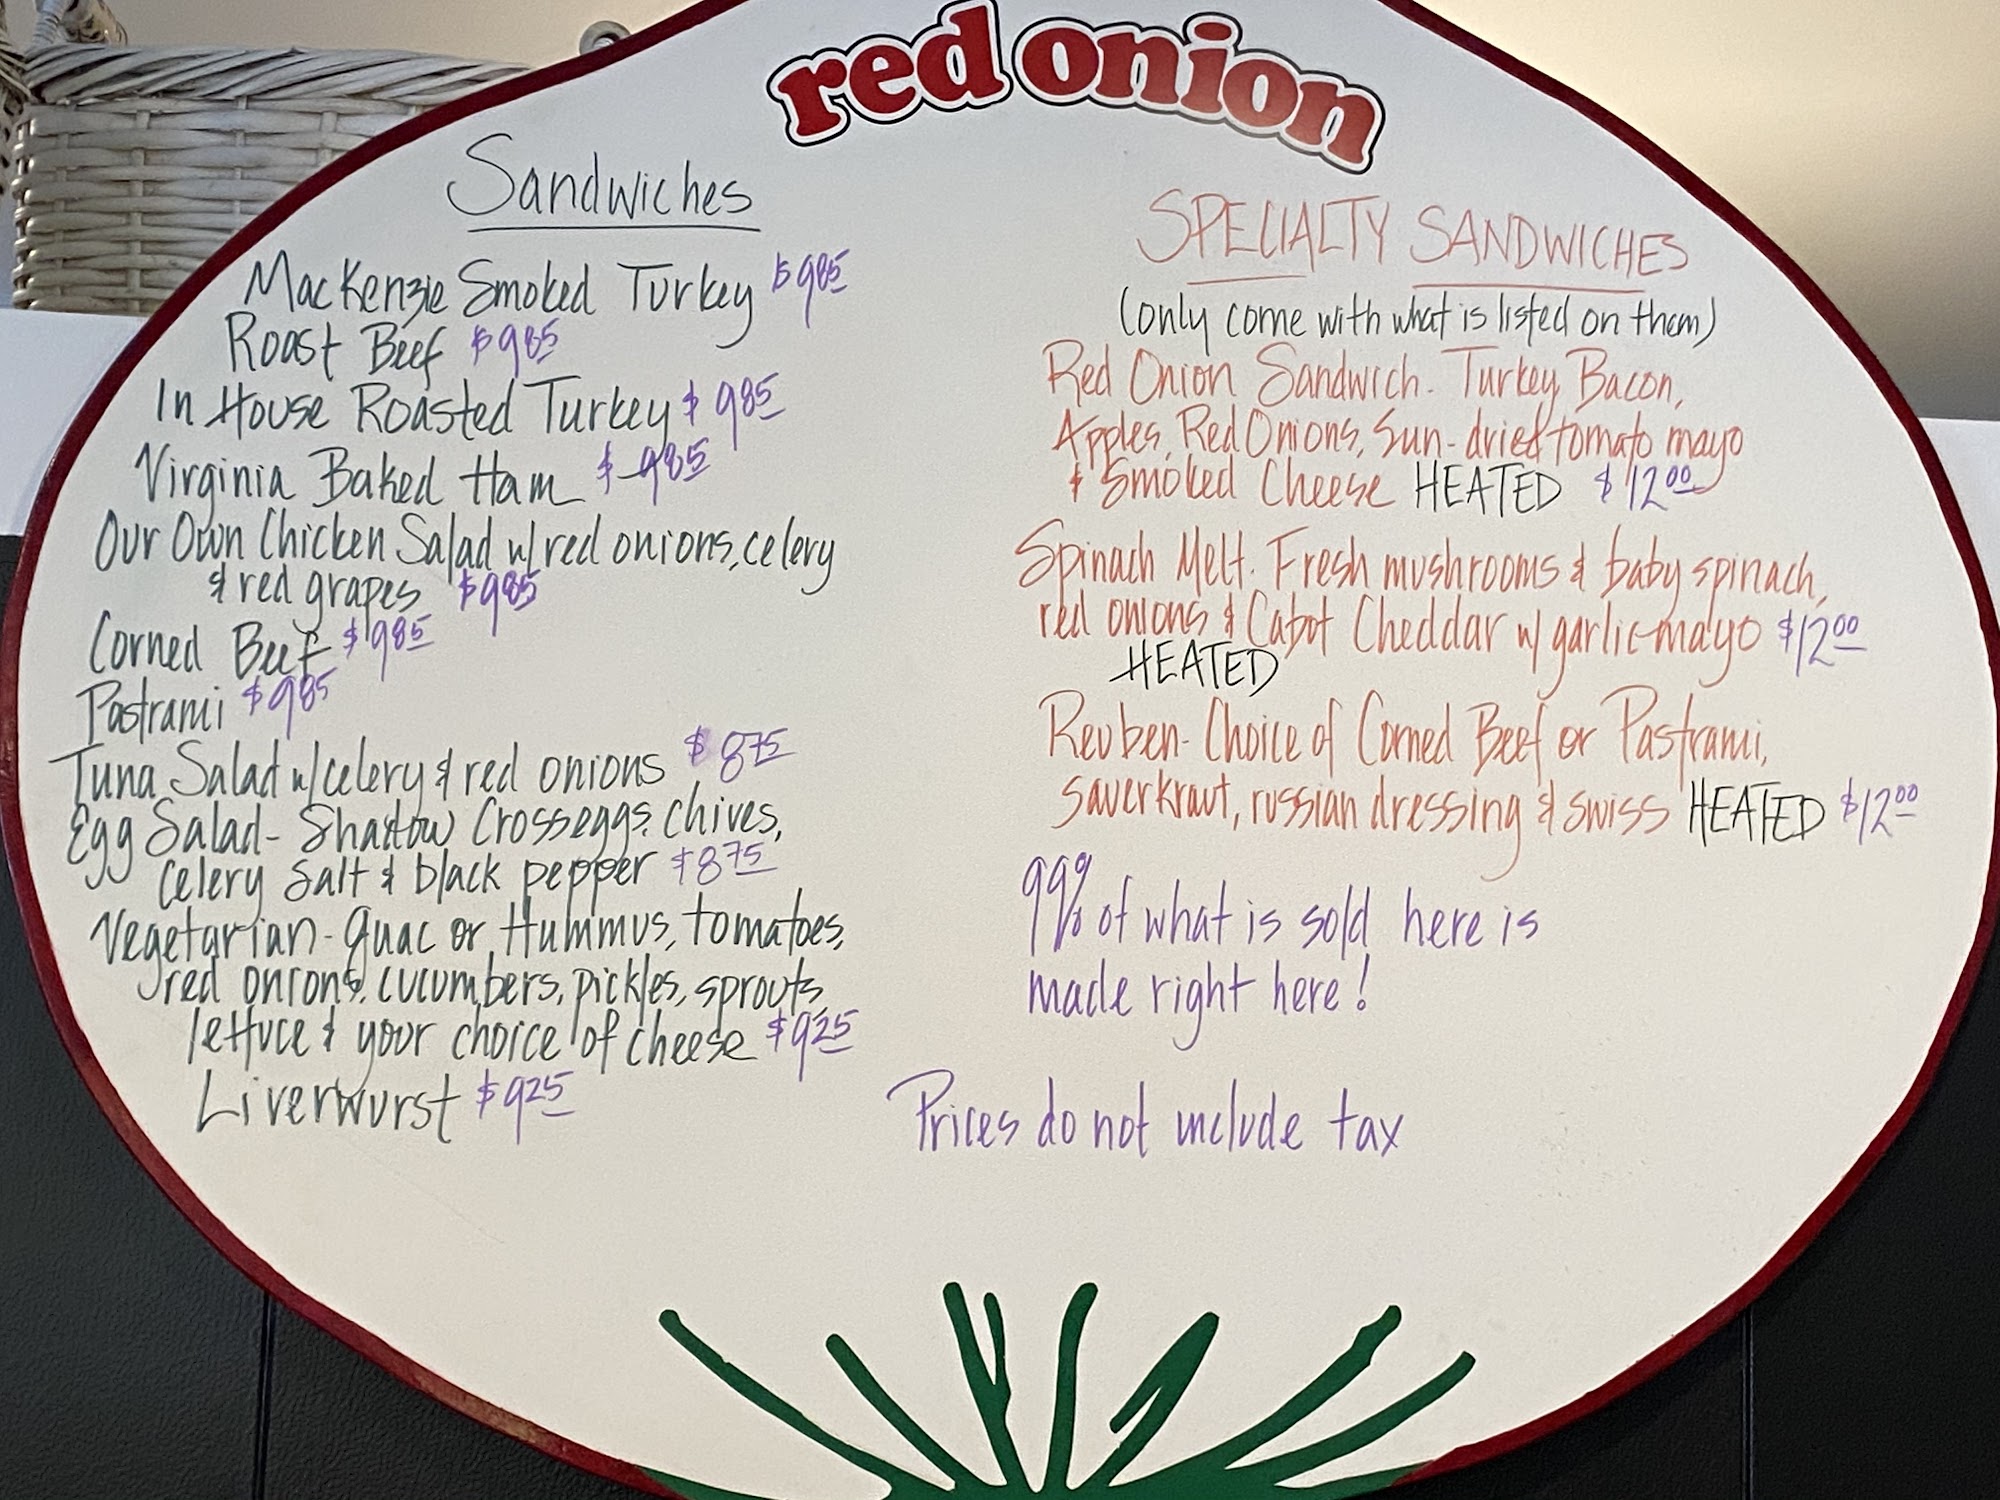 red onion
Sandwiches
MacKenzie Smoked Turkey $9.85
Roast Beef $9.85
In House Roasted Turkey $9.85
Virginia Baked Ham $9.85
Our Own Chicken Salad w/red onions, celery
& red grapes $9.85
Corned Beef $9.85
Pastrami $9.85
Tuna Salad w/celery & red onions $8.75
Egg Salad- Shadow Cross eggs, chives,
celery salt & black pepper $8.75
Vegetarian- Guac or Hummus, tomatoes,
red onions, cucumbers, pickles, sprouts,
lettuce & your choice of cheese $9.25
Liverwurst $9.25
SPECIALTY SANDWICHES
(only come with what is listed on them)
Red Onion Sandwich. Turkey, Bacon,
Apples, Red Onions, Sun-dried tomato mayo
& Smoked Cheese HEATED $12.00
Spinach Melt. Fresh mushrooms & baby spinach,
red onions & Cabot Cheddar w/ garlic mayo $12.00
HEATED
Reuben- Choice of Corned Beef or Pastrami,
sauerkraut, russian dressing & swiss HEATED $12.00
99% of what is sold here is
made right here!
Prices do not include tax